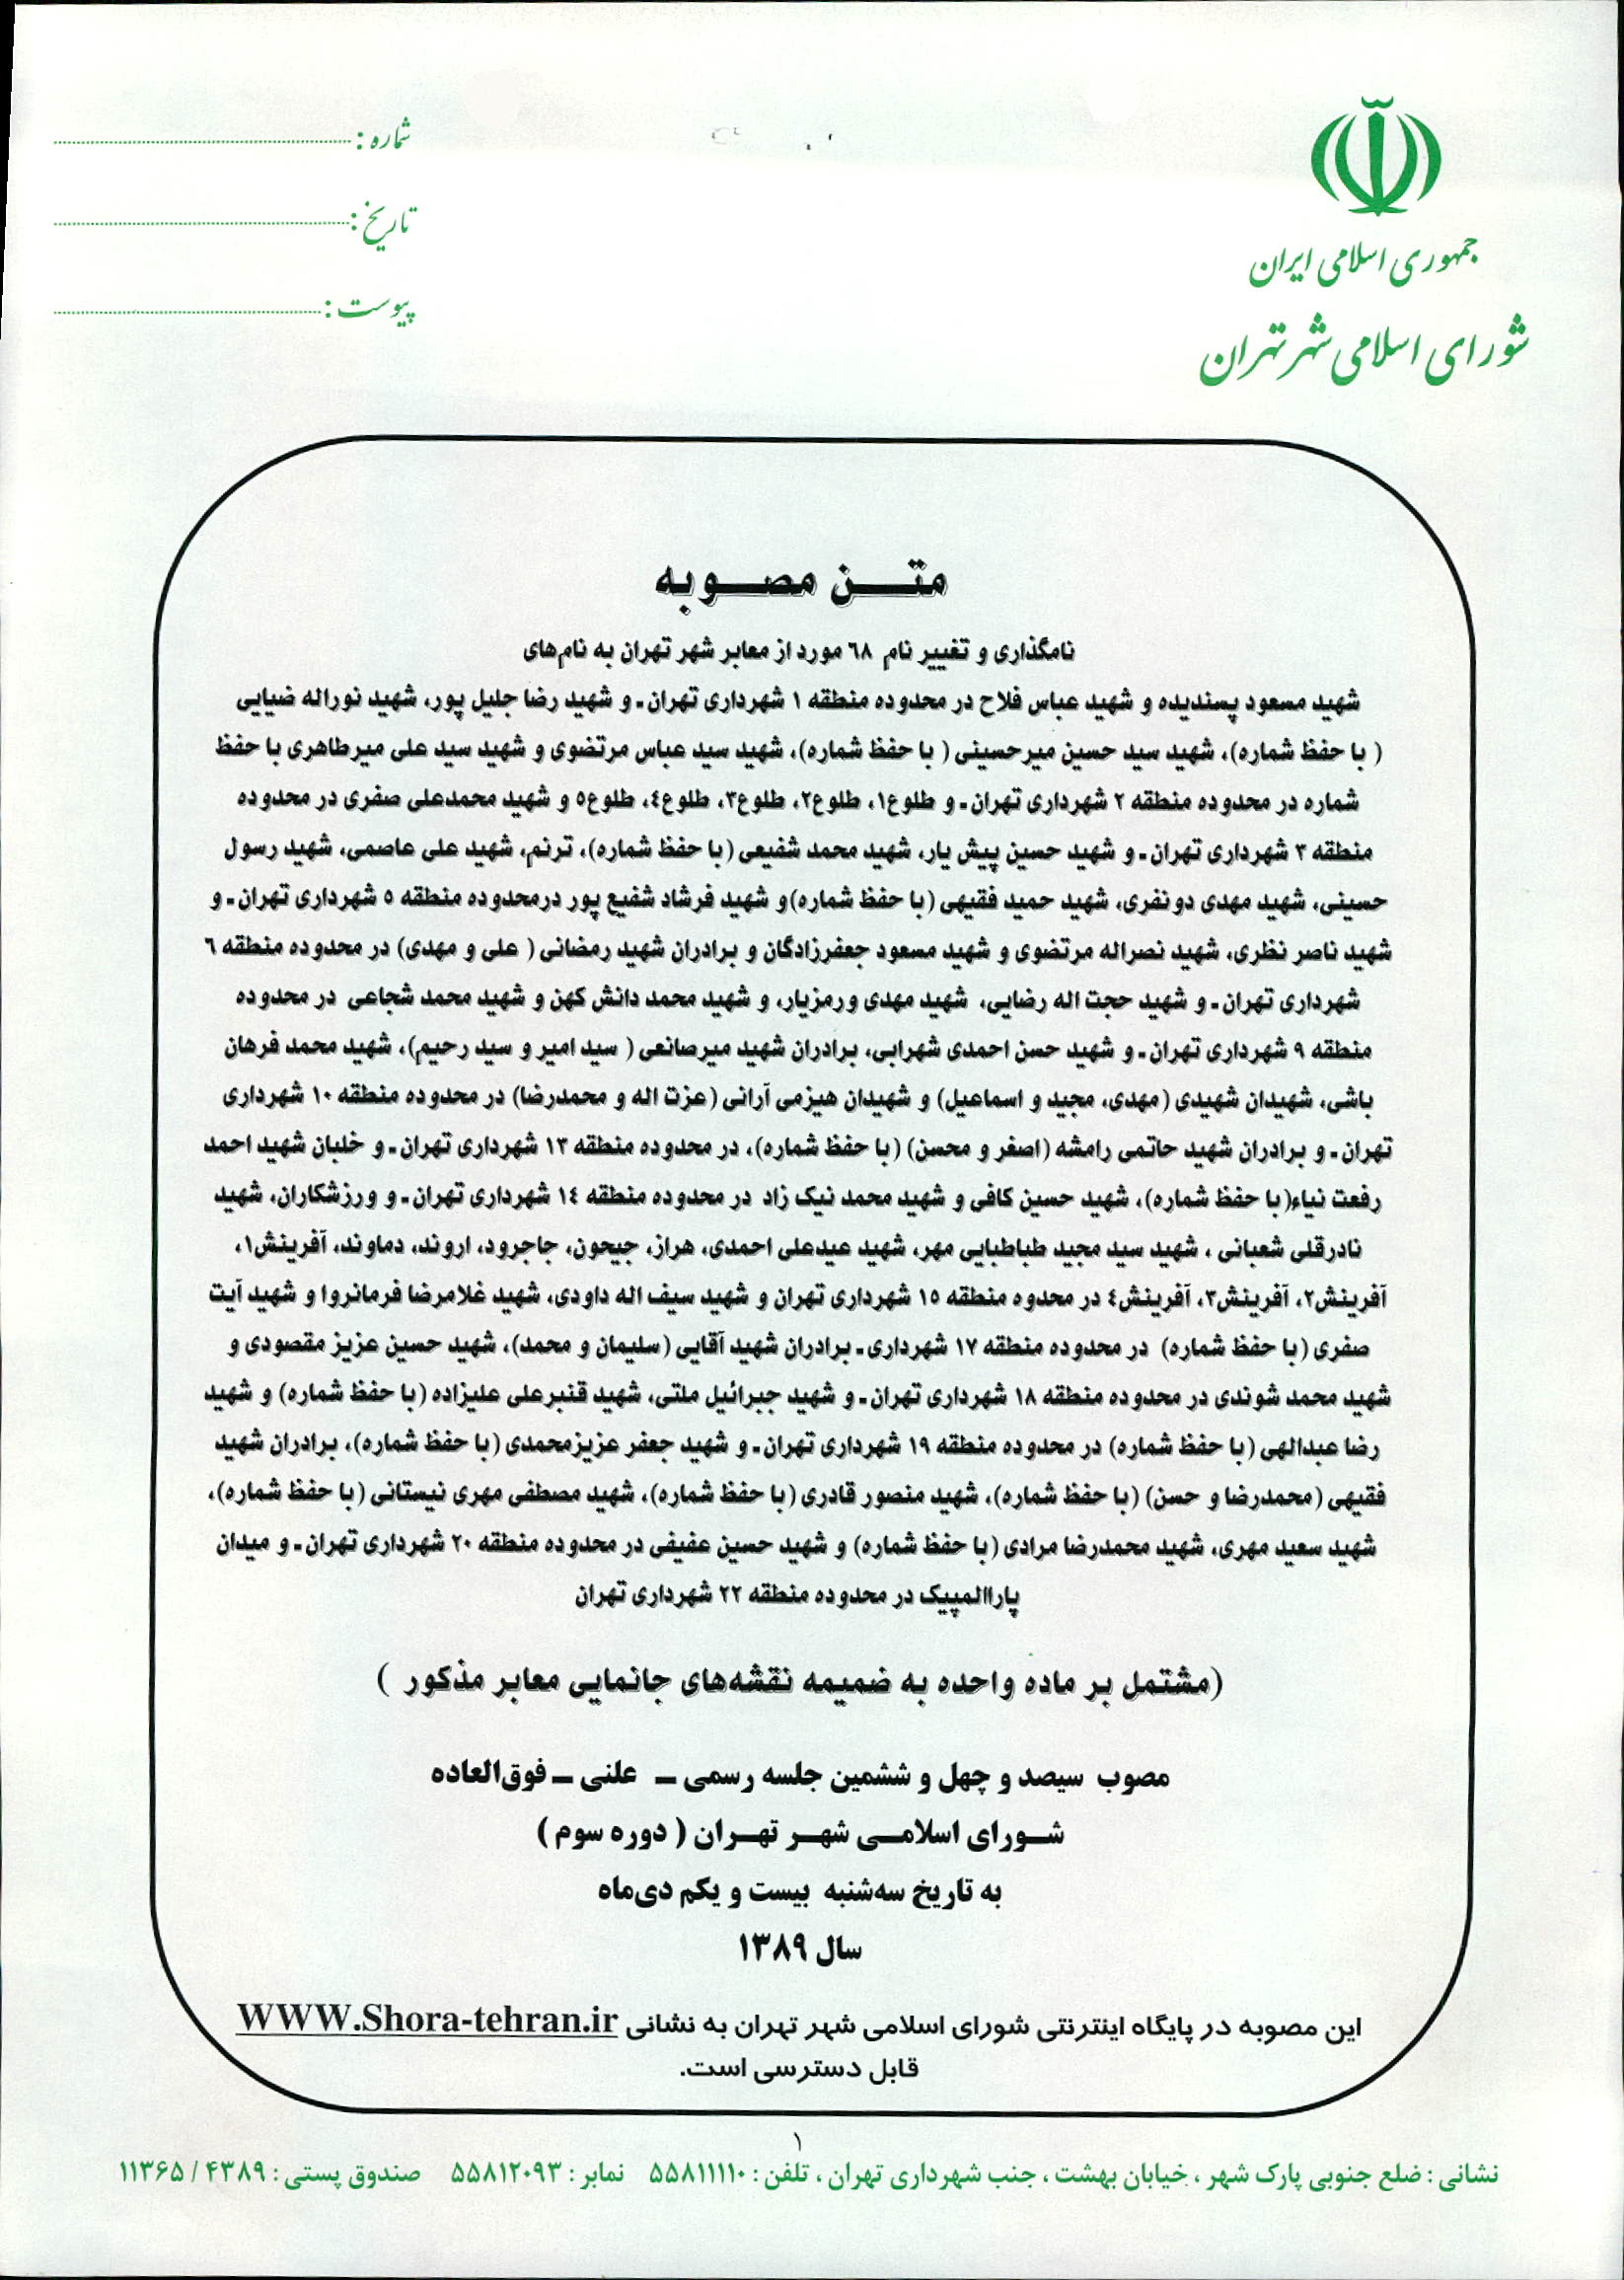 جمهوری اسلامی ایران
شورای اسلامی شهر تهران
شماره :
تاریخ :
پیوست :
متن مصوبه
نامگذاری و تغییر نام ۶۸ مورد از معابر شهر تهران به نام‌های
شهید مسعود پسندیده و شهید عباس فلاح در محدوده منطقه ۱ شهرداری تهران - و شهید رضا جلیل پور، شهید نوراله ضیایی
( با حفظ شماره)، شهید سید حسین میرحسینی ( با حفظ شماره)، شهید سید عباس مرتضوی و شهید سید علی میرطاهری با حفظ
شماره در محدوده منطقه ۲ شهرداری تهران - و طلوع۱، طلوع۲، طلوع۳، طلوع۴، طلوع۵ و شهید محمدعلی صفری در محدوده
منطقه ۳ شهرداری تهران - و شهید حسین پیش یار، شهید محمد شفیعی (با حفظ شماره)، ترنم، شهید علی عاصمی، شهید رسول
حسینی، شهید مهدی دونفری، شهید حمید فقیهی (با حفظ شماره)و شهید فرشاد شفیع پور درمحدوده منطقه ۵ شهرداری تهران - و
شهید ناصر نظری، شهید نصراله مرتضوی و شهید مسعود جعفرزادگان و برادران شهید رمضانی ( علی و مهدی) در محدوده منطقه ۶
شهرداری تهران - و شهید حجت اله رضایی، شهید مهدی ورمزیار، و شهید محمد دانش کهن و شهید محمد شجاعی در محدوده
منطقه ۹ شهرداری تهران - و شهید حسن احمدی شهرابی، برادران شهید میرصانعی ( سید امیر و سید رحیم)، شهید محمد فرهان
باشی، شهیدان شهیدی (مهدی، مجید و اسماعیل) و شهیدان هیزمی آرانی (عزت اله و محمدرضا) در محدوده منطقه ۱۰ شهرداری
تهران - و برادران شهید حاتمی رامشه (اصغر و محسن) (با حفظ شماره)، در محدوده منطقه ۱۳ شهرداری تهران - و خلبان شهید احمد
رفعت نیاء(با حفظ شماره)، شهید حسین کافی و شهید محمد نیک زاد در محدوده منطقه ۱۴ شهرداری تهران - و ورزشکاران، شهید
نادرقلی شعبانی ، شهید سید مجید طباطبایی مهر، شهید عیدعلی احمدی، هراز، جیحون، جاجرود، اروند، دماوند، آفرینش۱،
آفرینش۲، آفرینش۳، آفرینش۴ در محدوه منطقه ۱۵ شهرداری تهران و شهید سیف اله داودی، شهید غلامرضا فرمانروا و شهید آیت
صفری (با حفظ شماره) در محدوده منطقه ۱۷ شهرداری - برادران شهید آقایی (سلیمان و محمد)، شهید حسین عزیز مقصودی و
شهید محمد شوندی در محدوده منطقه ۱۸ شهرداری تهران - و شهید جبرائیل ملتی، شهید قنبرعلی علیزاده (با حفظ شماره) و شهید
رضا عبدالهی (با حفظ شماره) در محدوده منطقه ۱۹ شهرداری تهران - و شهید جعفر عزیزمحمدی (با حفظ شماره)، برادران شهید
فقیهی (محمدرضا و حسن) (با حفظ شماره)، شهید منصور قادری (با حفظ شماره)، شهید مصطفی مهری نیستانی (با حفظ شماره)،
شهید سعید مهری، شهید محمدرضا مرادی (با حفظ شماره) و شهید حسین عفیفی در محدوده منطقه ۲۰ شهرداری تهران - و میدان
پاراالمپیک در محدوده منطقه ۲۲ شهرداری تهران
(مشتمل بر ماده واحده به ضمیمه نقشه‌های جانمایی معابر مذکور )
مصوب سیصد و چهل و ششمین جلسه رسمی – علنی – فوق‌العاده
شورای اسلامی شهر تهران ( دوره سوم )
به تاریخ سه‌شنبه بیست و یکم دی‌ماه
سال ۱۳۸۹
این مصوبه در پایگاه اینترنتی شورای اسلامی شهر تهران به نشانی WWW.Shora-tehran.ir
قابل دسترسی است.
۱
نشانی : ضلع جنوبی پارک شهر ، خیابان بهشت ، جنب شهرداری تهران ، تلفن : ۵۵۸۱۱۱۱۰ نمابر : ۵۵۸۱۲۰۹۳ صندوق پستی : ۴۳۸۹ / ۱۱۳۶۵